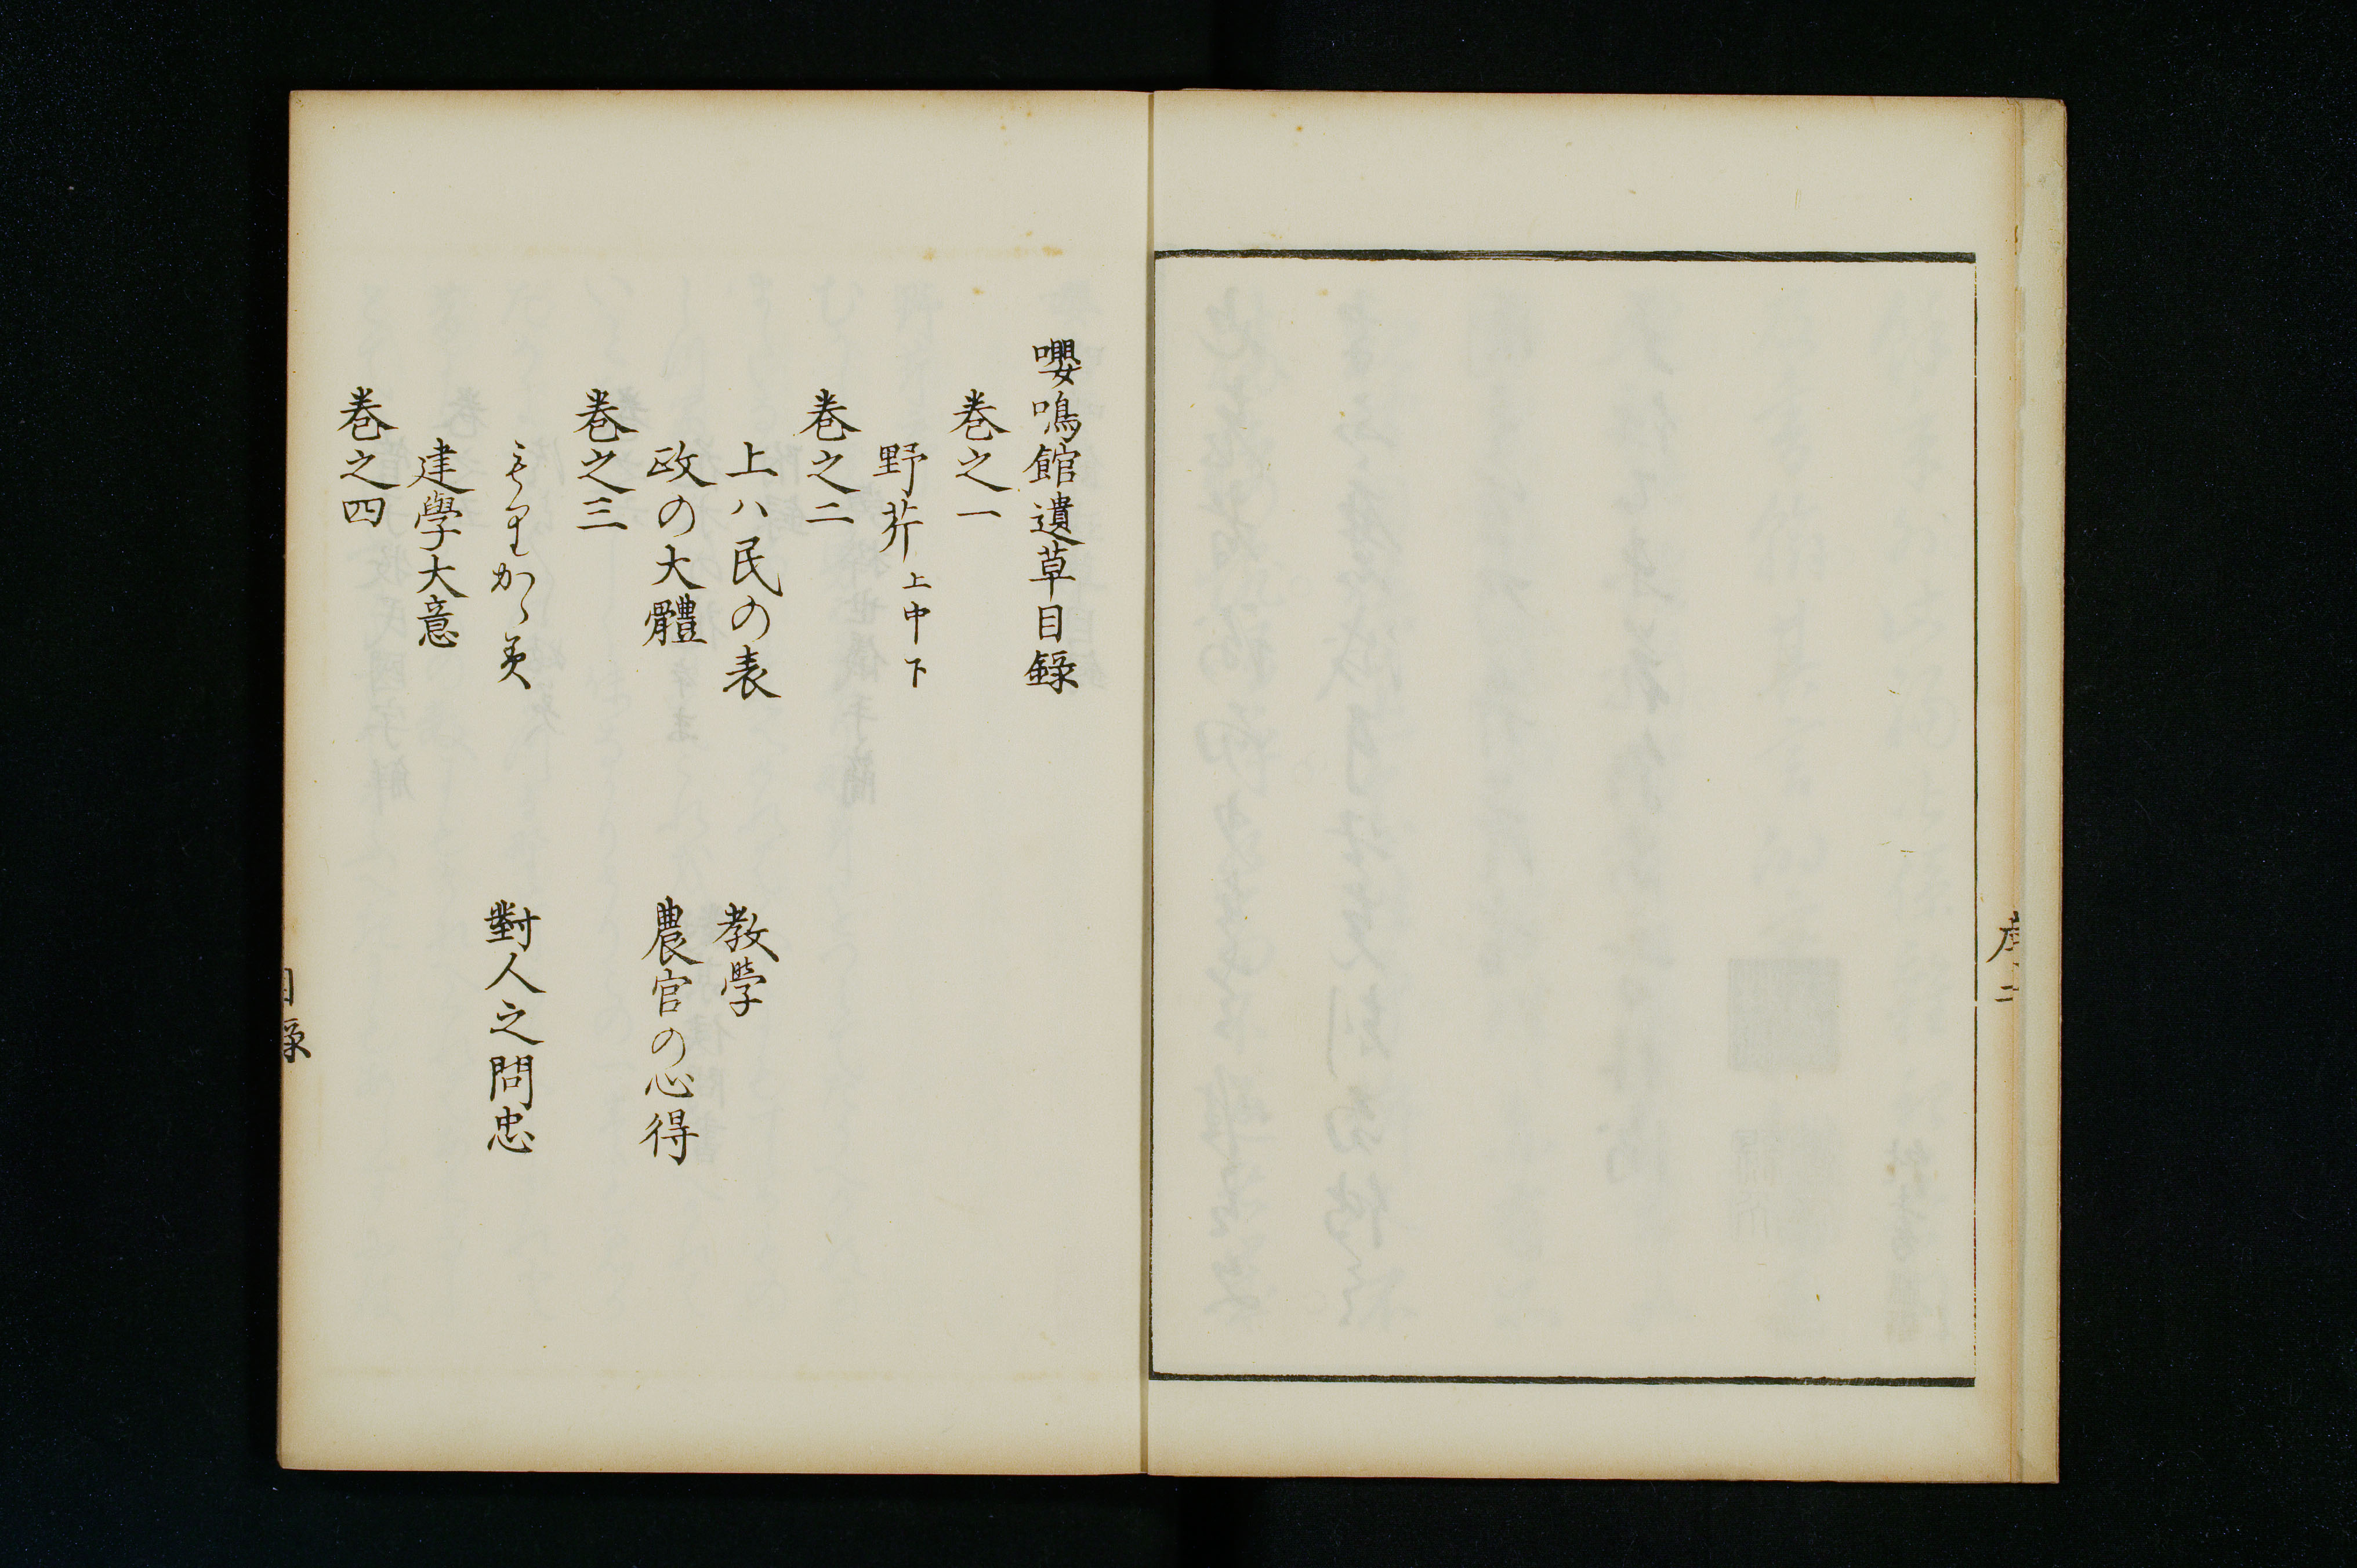 序二
嚶鳴館遺草目録
巻之一
野芥 上中下
巻之二
上ハ民の表 教学
政の大體 農官の心得
巻之三
もりかゝみ 對人之問忠
建學大意
巻之四
目録